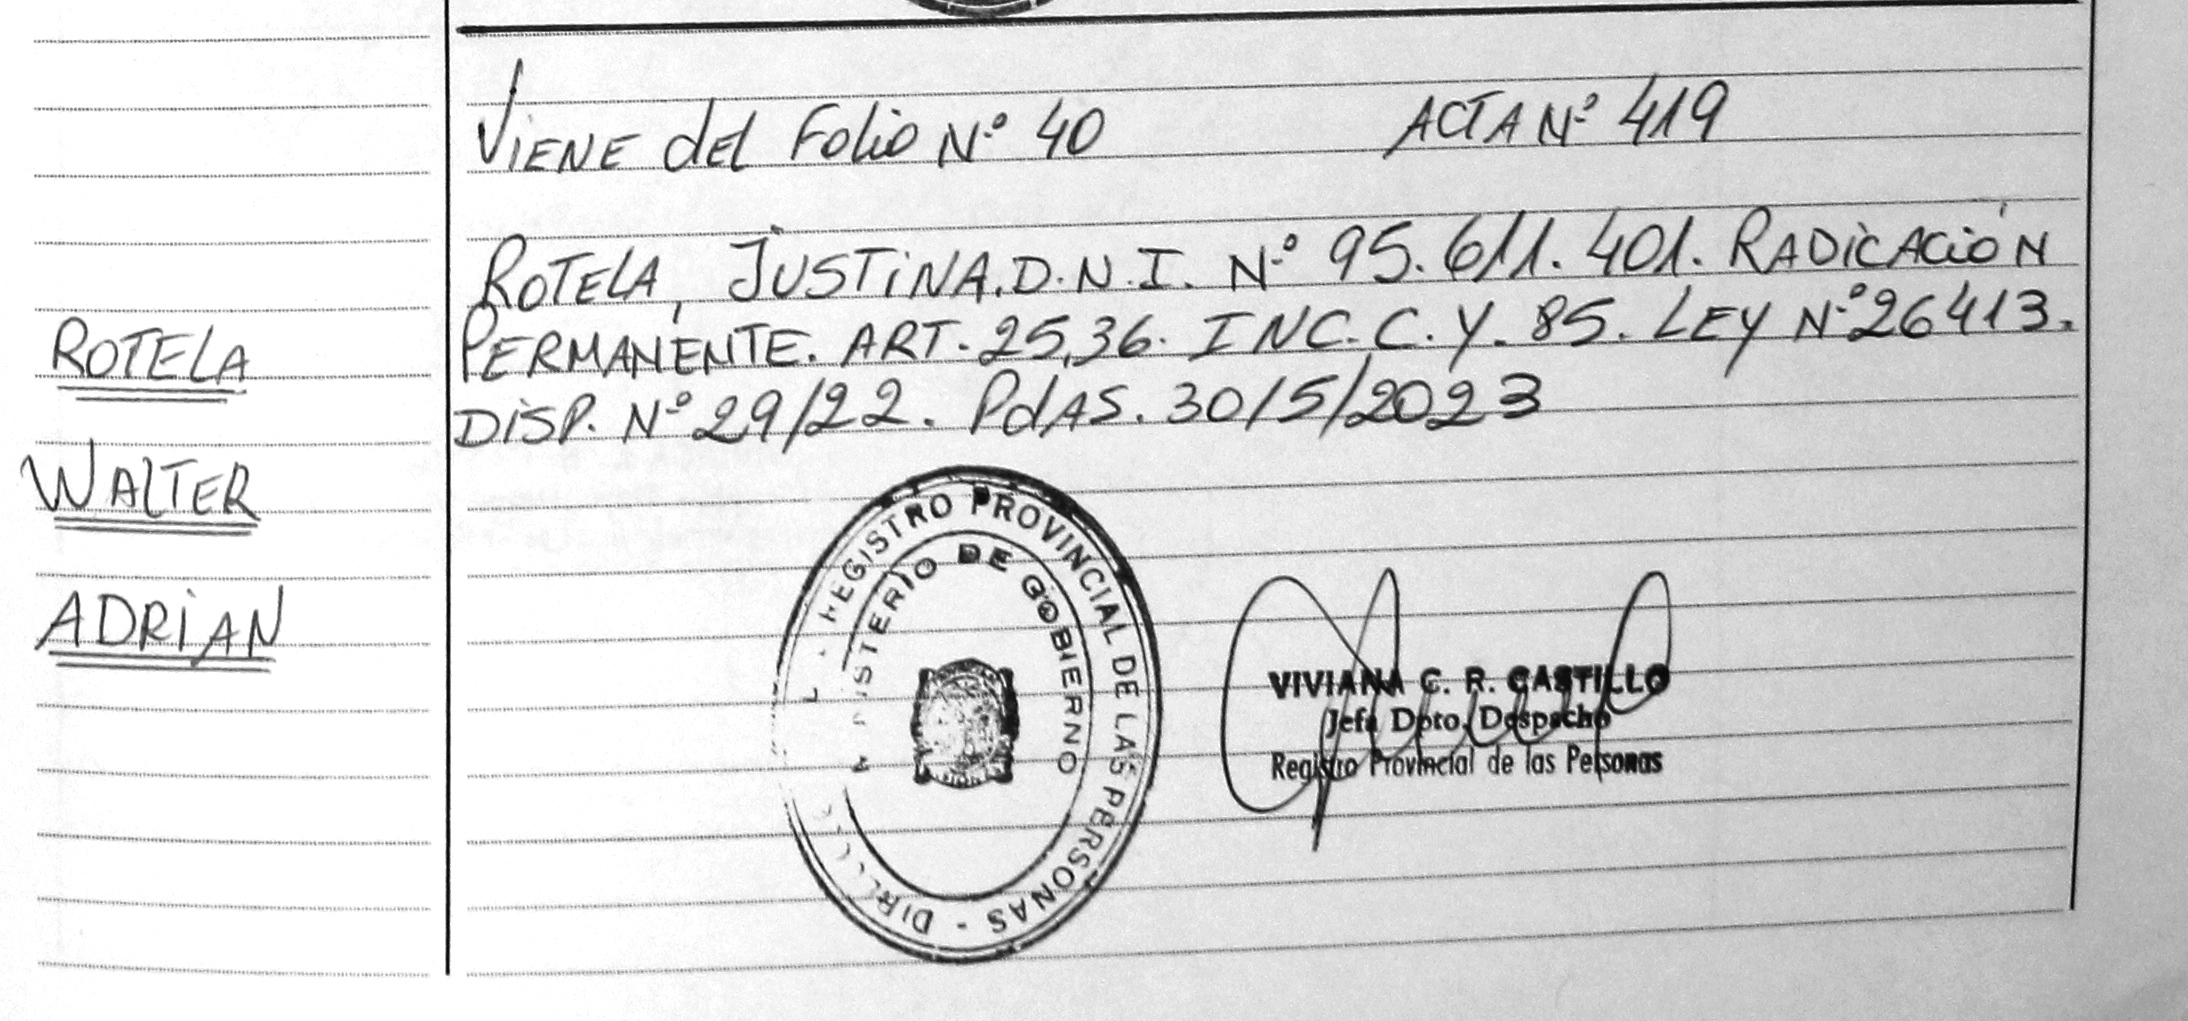 Viene del Folio Nº 40 ACTA Nº 419
ROTELA, JUSTINA. D.N.I. Nº 95.611.401. RADICACIÓN
PERMANENTE. ART. 25,36. INC. C. Y. 85. LEY Nº 26413.
DISP. Nº 29/22. PdAS. 30/5/2023
ROTELA
WALTER
ADRIAN
REGISTRO PROVINCIAL DE LAS PERSONAS -
DE GOBIERNO
VIVIANA C. R. CASTILLO
Jefa Dpto. Despacho
Registro Provincial de las Personas